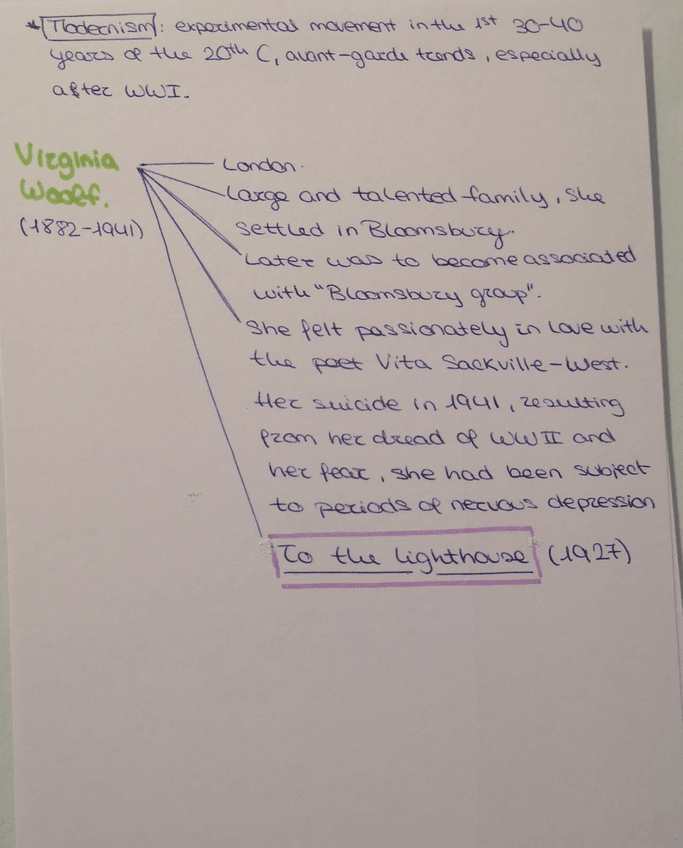 * Modernism: experimental movement in the 1st 30-40
years of the 20th C, avant-garde trends, especially
after WWI.
Virginia
Woolf.
(1882-1941)
London.
Large and talented family, she
settled in Bloomsbury.
Later was to become associated
with "Bloomsbury group".
She felt passionately in love with
the poet Vita Sackville-West.
Her suicide in 1941, resulting
from her dread of WWII and
her fear, she had been subject
to periods of nervous depression
To the Lighthouse (1927)